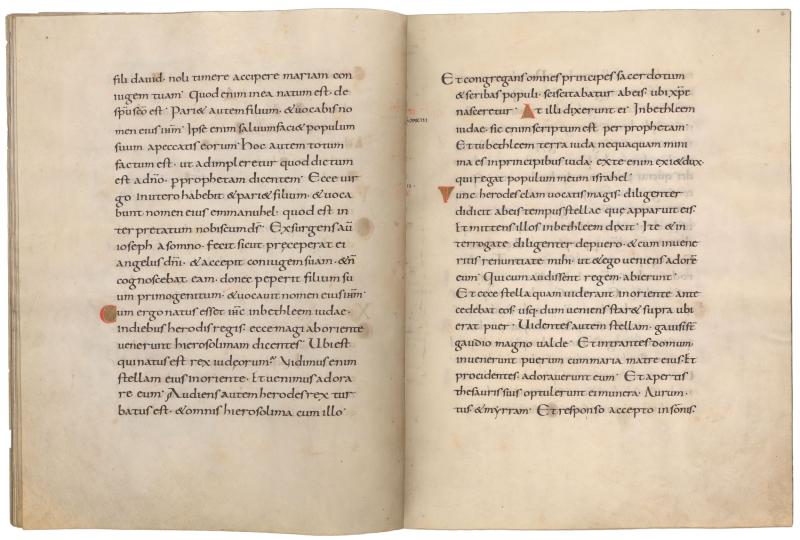 fili dauid· noli timere accipere mariam con
iugem tuam· Quod enim inea natum est· de
spu sco est· Pariet autem filium· & uocabis no
men eius ihm· Ipse enim saluum faci& populum
suum apeccatis eorum· Hoc autem totum
factum est· ut adimpleretur quod dictum
est adno· p prophetam dicentem· Ecce uir
go inutero habebit & pari& filium· & uoca
bunt nomen eius emmanuhel· quod est in
terpretatum nobiscum ds· Exsurgens au
ioseph asomno· fecit sicut pręceperat ei
angelus dni· & accepit coniugem suam· & n
cognoscebat eam· donec peperit filium su
um primogenitum· & uocauit nomen eius ihm·
Cum ergo natus esset ihc inbethleem iudae·
indiebus herodis regis· ecce magi aboriente
uenerunt hierosolimam dicentes· Ubi est
qui natus est rex iudęorum? Vidimus enim
stellam eius inoriente· Et uenimus adora
re eum· Audiens autem herodes rex tur
batus est· & omnis hierosolima cum illo·
Et congregans omnes principes sacerdotum
& scribas populi· sciscitabatur abeis· ubi xps
nasceretur· At illi dixerunt ei· Inbethleem
iudae· sic enim scriptum est per prophetam·
Et tu bethleem terra iuda nequaquam mini
ma es inprincipibus iuda· exte enim exi& dux·
qui regat populum meum israhel·
Tunc herodes clam uocatis magis· diligenter
didicit abeis tempus stellae que apparuit eis·
Et mittens illos inbethleem dixit· Ite & in
terrogate diligenter depuero· & cum inuene
ritis renuntiate mihi· ut & ego ueniens adore
eum· Qui cum audissent regem· abierunt·
Et ecce stella quam uiderant inoriente ante
cedebat eos· usq; dum ueniens star& supra ubi
erat puer· Uidentes autem stellam· gauisi st
gaudio magno ualde· Et intrantes domum·
inuenerunt puerum cum maria matre eius· Et
procidentes· adorauerunt eum· Et apertis
thesauris suis optulerunt ei munera· Aurum·
tus· & myrram· Et responso accepto insonis·